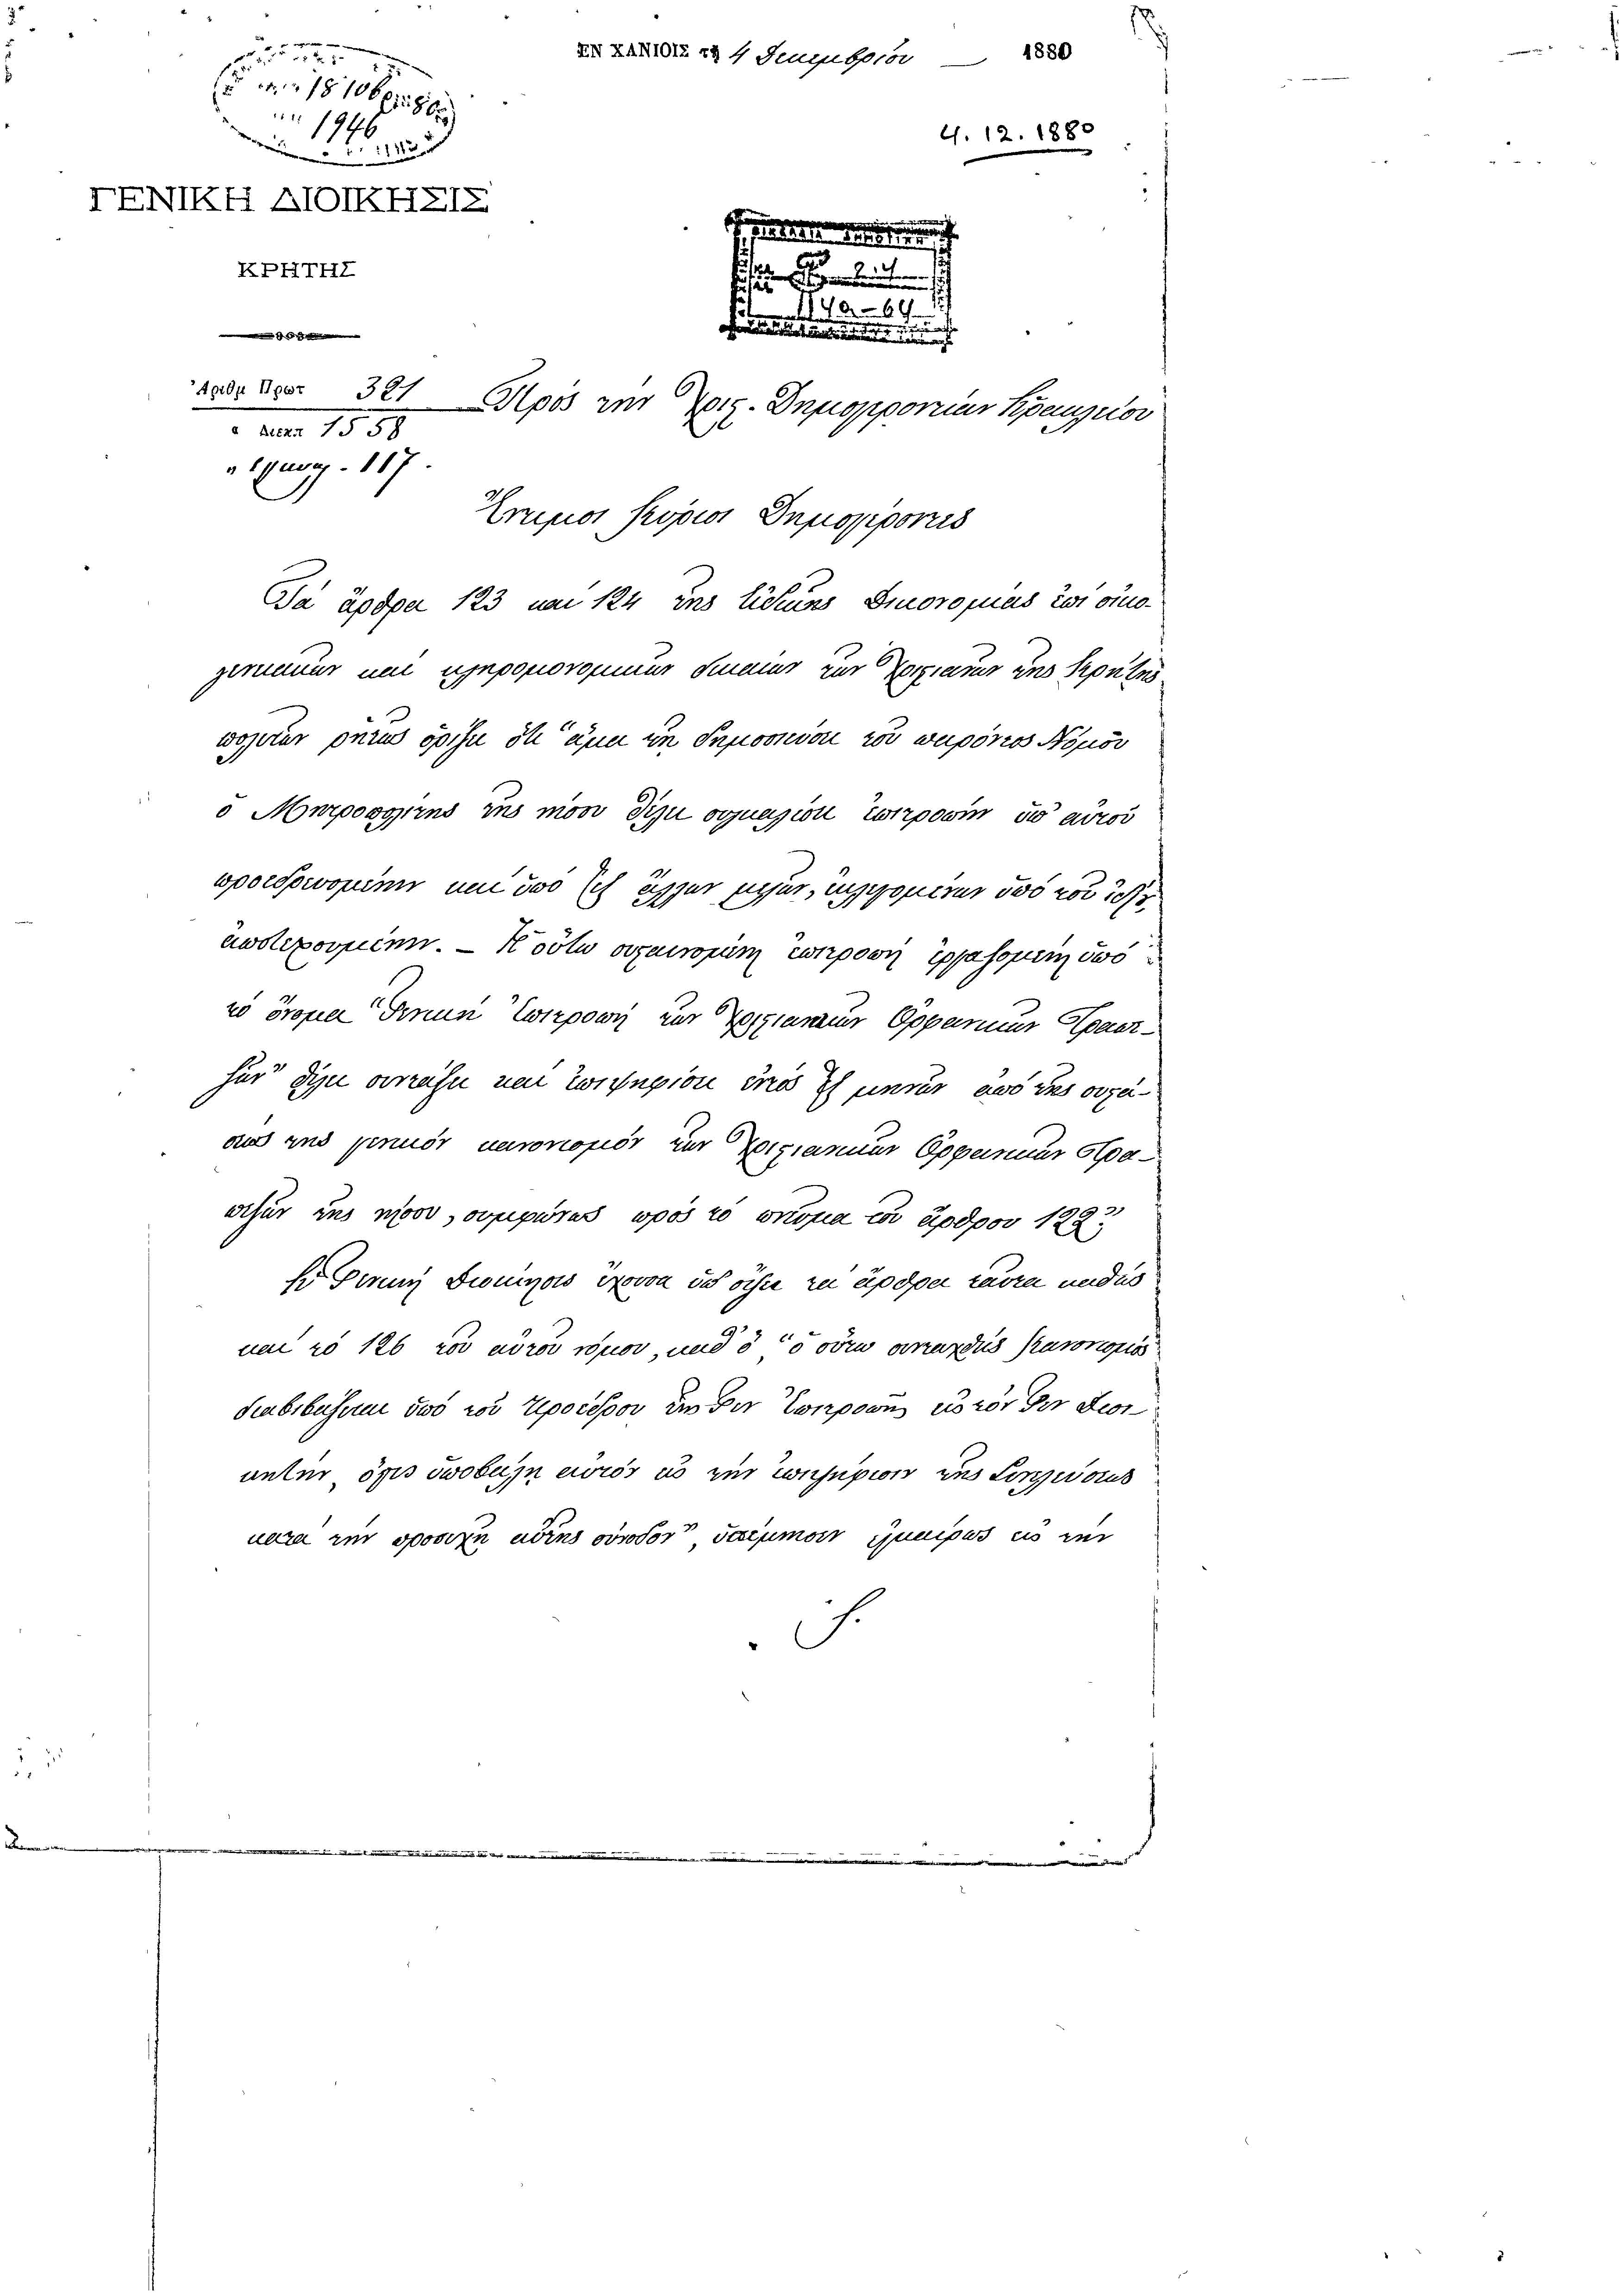 ΕΝ ΧΑΝΙΟΙΣ τῇ 4 Δεκεμβρίου 1880
18106
1946
4. 12. 1880
ΓΕΝΙΚΗ ΔΙΟΙΚΗΣΙΣ
ΚΡΗΤΗΣ
Ἀριθ. Πρωτ 321 Πρὸς τὴν Χριστ. Δημογεροντίαν Ἡρακλείου
" Διεκπ 1558
117.
Ἔντιμοι Κύριοι Δημογέροντες
Τὰ ἄρθρα 123 καὶ 124 τῆς εἰδικῆς Δικονομίας ἐπὶ οἰκο-
γενειακῶν καὶ κληρονομικῶν δικαίων τῶν Χριστιανῶν τῆς Κρήτης
ῥητῶς ὁρίζει ὅτι "ἅμα τῇ δημοσιεύσει τοῦ παρόντος Νόμου
ὁ Μητροπολίτης τῆς νήσου θέλει συγκαλέσει ἐπιτροπὴν ὑπ' αὐτοῦ
προεδρευομένην καὶ ὑπὸ ἓξ ἄλλων μελῶν, ἐκλεγομένων ὑπὸ τοῦ ἰδίου,
ἀποτελουμένην. – Ἡ οὕτω συγκροτουμένη ἐπιτροπὴ ἐργαζομένη ὑπὸ
τὸ ὄνομα "Γενικὴ Ἐπιτροπὴ τῶν Χριστιανικῶν Ὀρφανικῶν Τραπε-
ζῶν" θέλει συντάξει καὶ ἐπιψηφίσει ἐντὸς ἓξ μηνῶν ἀπὸ τῆς συστά-
σεως τὸν γενικὸν κανονισμὸν τῶν Χριστιανικῶν Ὀρφανικῶν Τρα-
πεζῶν τῆς νήσου, συμφώνως πρὸς τὸ πνεῦμα τοῦ ἄρθρου 122"
Ἡ Γενικὴ Διοίκησις ἔχουσα ὑπ' ὄψει τὰ ἄρθρα ταῦτα καθὼς
καὶ τὸ 126 τοῦ αὐτοῦ νόμου, καθ' ὃ "ὁ οὕτω συνταχθεὶς Κανονισμὸς
διαβιβάζεται ὑπὸ τοῦ Προέδρου τῆς Γεν Ἐπιτροπῆς εἰς τὸν Γεν Διοι-
κητὴν, ὅστις ὑποβάλλει αὐτὸν εἰς τὴν ἐπιψήφισιν τῆς Συνελεύσεως
κατὰ τὴν προσεχῆ αὐτῆς σύνοδον", εἰς τὴν